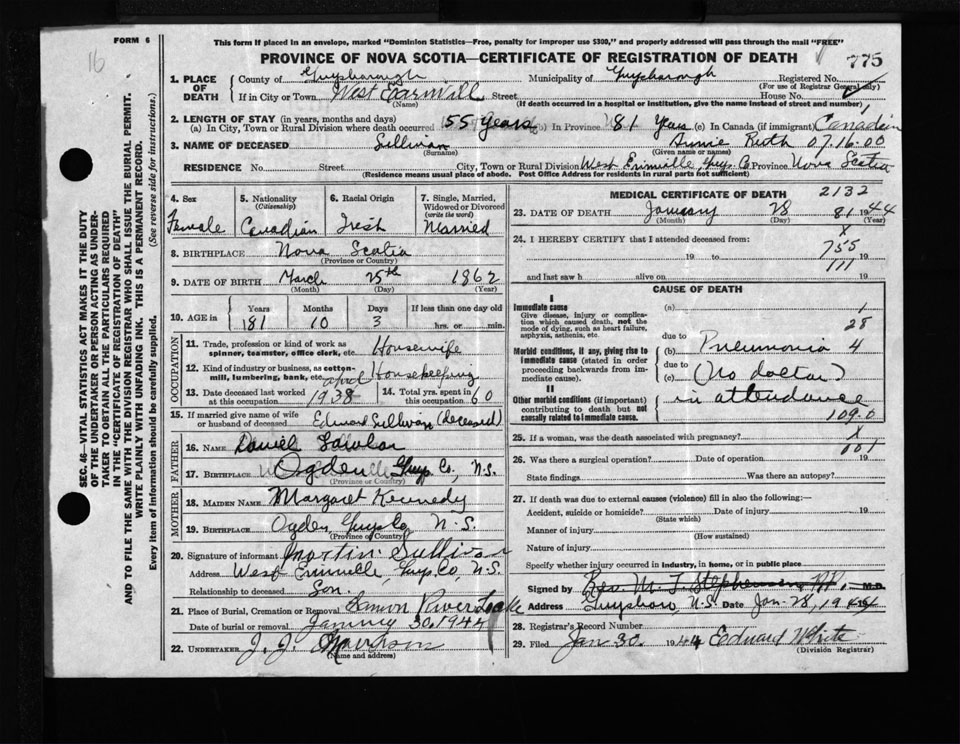 16
FORM 6
This form if placed in an envelope, marked "Dominion Statistics—Free, penalty for improper use $300," and properly addressed will pass through the mail "FREE"
PROVINCE OF NOVA SCOTIA—CERTIFICATE OF REGISTRATION OF DEATH
775
SEC. 46—VITAL STATISTICS ACT MAKES IT THE DUTY
OF THE UNDERTAKER OR PERSON ACTING AS UNDER-
TAKER TO OBTAIN ALL THE PARTICULARS REQUIRED
IN THE "CERTIFICATE OF REGISTRATION OF DEATH"
AND TO FILE THE SAME WITH THE DIVISION REGISTRAR WHO SHALL ISSUE THE BURIAL PERMIT.
WRITE PLAINLY WITH UNFADING INK. THIS IS A PERMANENT RECORD.
Every item of information should be carefully supplied. (See reverse side for instructions.)
1. PLACE OF DEATH County of Guysborough Municipality of Guysborough Registered No.
(For use of Registrar General only)
If in City or Town West Street House No.
(Name) (If death occurred in a hospital or institution, give the name instead of street and number)
2. LENGTH OF STAY (in years, months and days)
(a) In City, Town or Rural Division where death occurred 55 Years (b) In Province 81 Years (c) In Canada (if immigrant) Canadian
3. NAME OF DECEASED Sullivan Annie Ruth 07.16.00
(Surname) (Given name or names)
RESIDENCE No. Street City, Town or Rural Division West Erinville Guys. Co Province Nova Scotia
(Residence means usual place of abode. Post Office Address for residents in rural parts not sufficient)
4. Sex Female
5. Nationality (Citizenship) Canadian
6. Racial Origin Irish
7. Single, Married, Widowed or Divorced (write the word) Married
8. BIRTHPLACE Nova Scotia
(Province or Country)
9. DATE OF BIRTH March 25th 1862
(Month) (Day) (Year)
10. AGE in Years Months Days If less than one day old
81 10 3 hrs. or min.
OCCUPATION
11. Trade, profession or kind of work as spinner, teamster, office clerk, etc. Housewife
12. Kind of industry or business, as cotton-mill, lumbering, bank, etc. Housekeeping
13. Date deceased last worked at this occupation April 1938
14. Total yrs. spent in this occupation 60
15. If married give name of wife or husband of deceased Edward Sullivan (deceased)
FATHER
16. Name Daniel
17. Birthplace Ogden Guys. Co, N.S.
(Province or Country)
MOTHER
18. Maiden Name Margaret Kennedy
19. Birthplace Ogden Guys Co N.S.
(Province or Country)
20. Signature of informant Martin Sullivan
Address West Erinville, Guys. Co, N.S.
Relationship to deceased Son.
21. Place of Burial, Cremation or Removal Salmon River Lake
Date of burial or removal January 30. 1944
22. UNDERTAKER J. J.
(Name and address)
MEDICAL CERTIFICATE OF DEATH 2132
23. DATE OF DEATH January 28 1944
(Month) (Day) (Year)
81
24. I HEREBY CERTIFY that I attended deceased from: X
19 to 755 19
and last saw h alive on 111 19
CAUSE OF DEATH
I
Immediate cause
Give disease, injury or complication which caused death, not the mode of dying, such as heart failure, asphyxia, asthenia, etc.
(a) 1
28
due to
Morbid conditions, if any, giving rise to immediate cause (stated in order proceeding backwards from immediate cause).
(b) Pneumonia 4
due to
(c) (No doctor)
II
Other morbid conditions (if important) contributing to death but not causally related to immediate cause.
in attendance
109.0
25. If a woman, was the death associated with pregnancy? X
101
26. Was there a surgical operation? Date of operation 19
State findings Was there an autopsy?
27. If death was due to external causes (violence) fill in also the following:—
Accident, suicide or homicide? Date of injury 19
(State which)
Manner of injury
(How sustained)
Nature of injury
Specify whether injury occurred in industry, in home, or in public place
Signed by Rev. M. J. Stephenson, P.P. M.D.
Address Guysboro, N.S. Date Jan. 28, 1944
28. Registrar's Record Number
29. Filed Jan 30. 1944 Edward White
(Division Registrar)